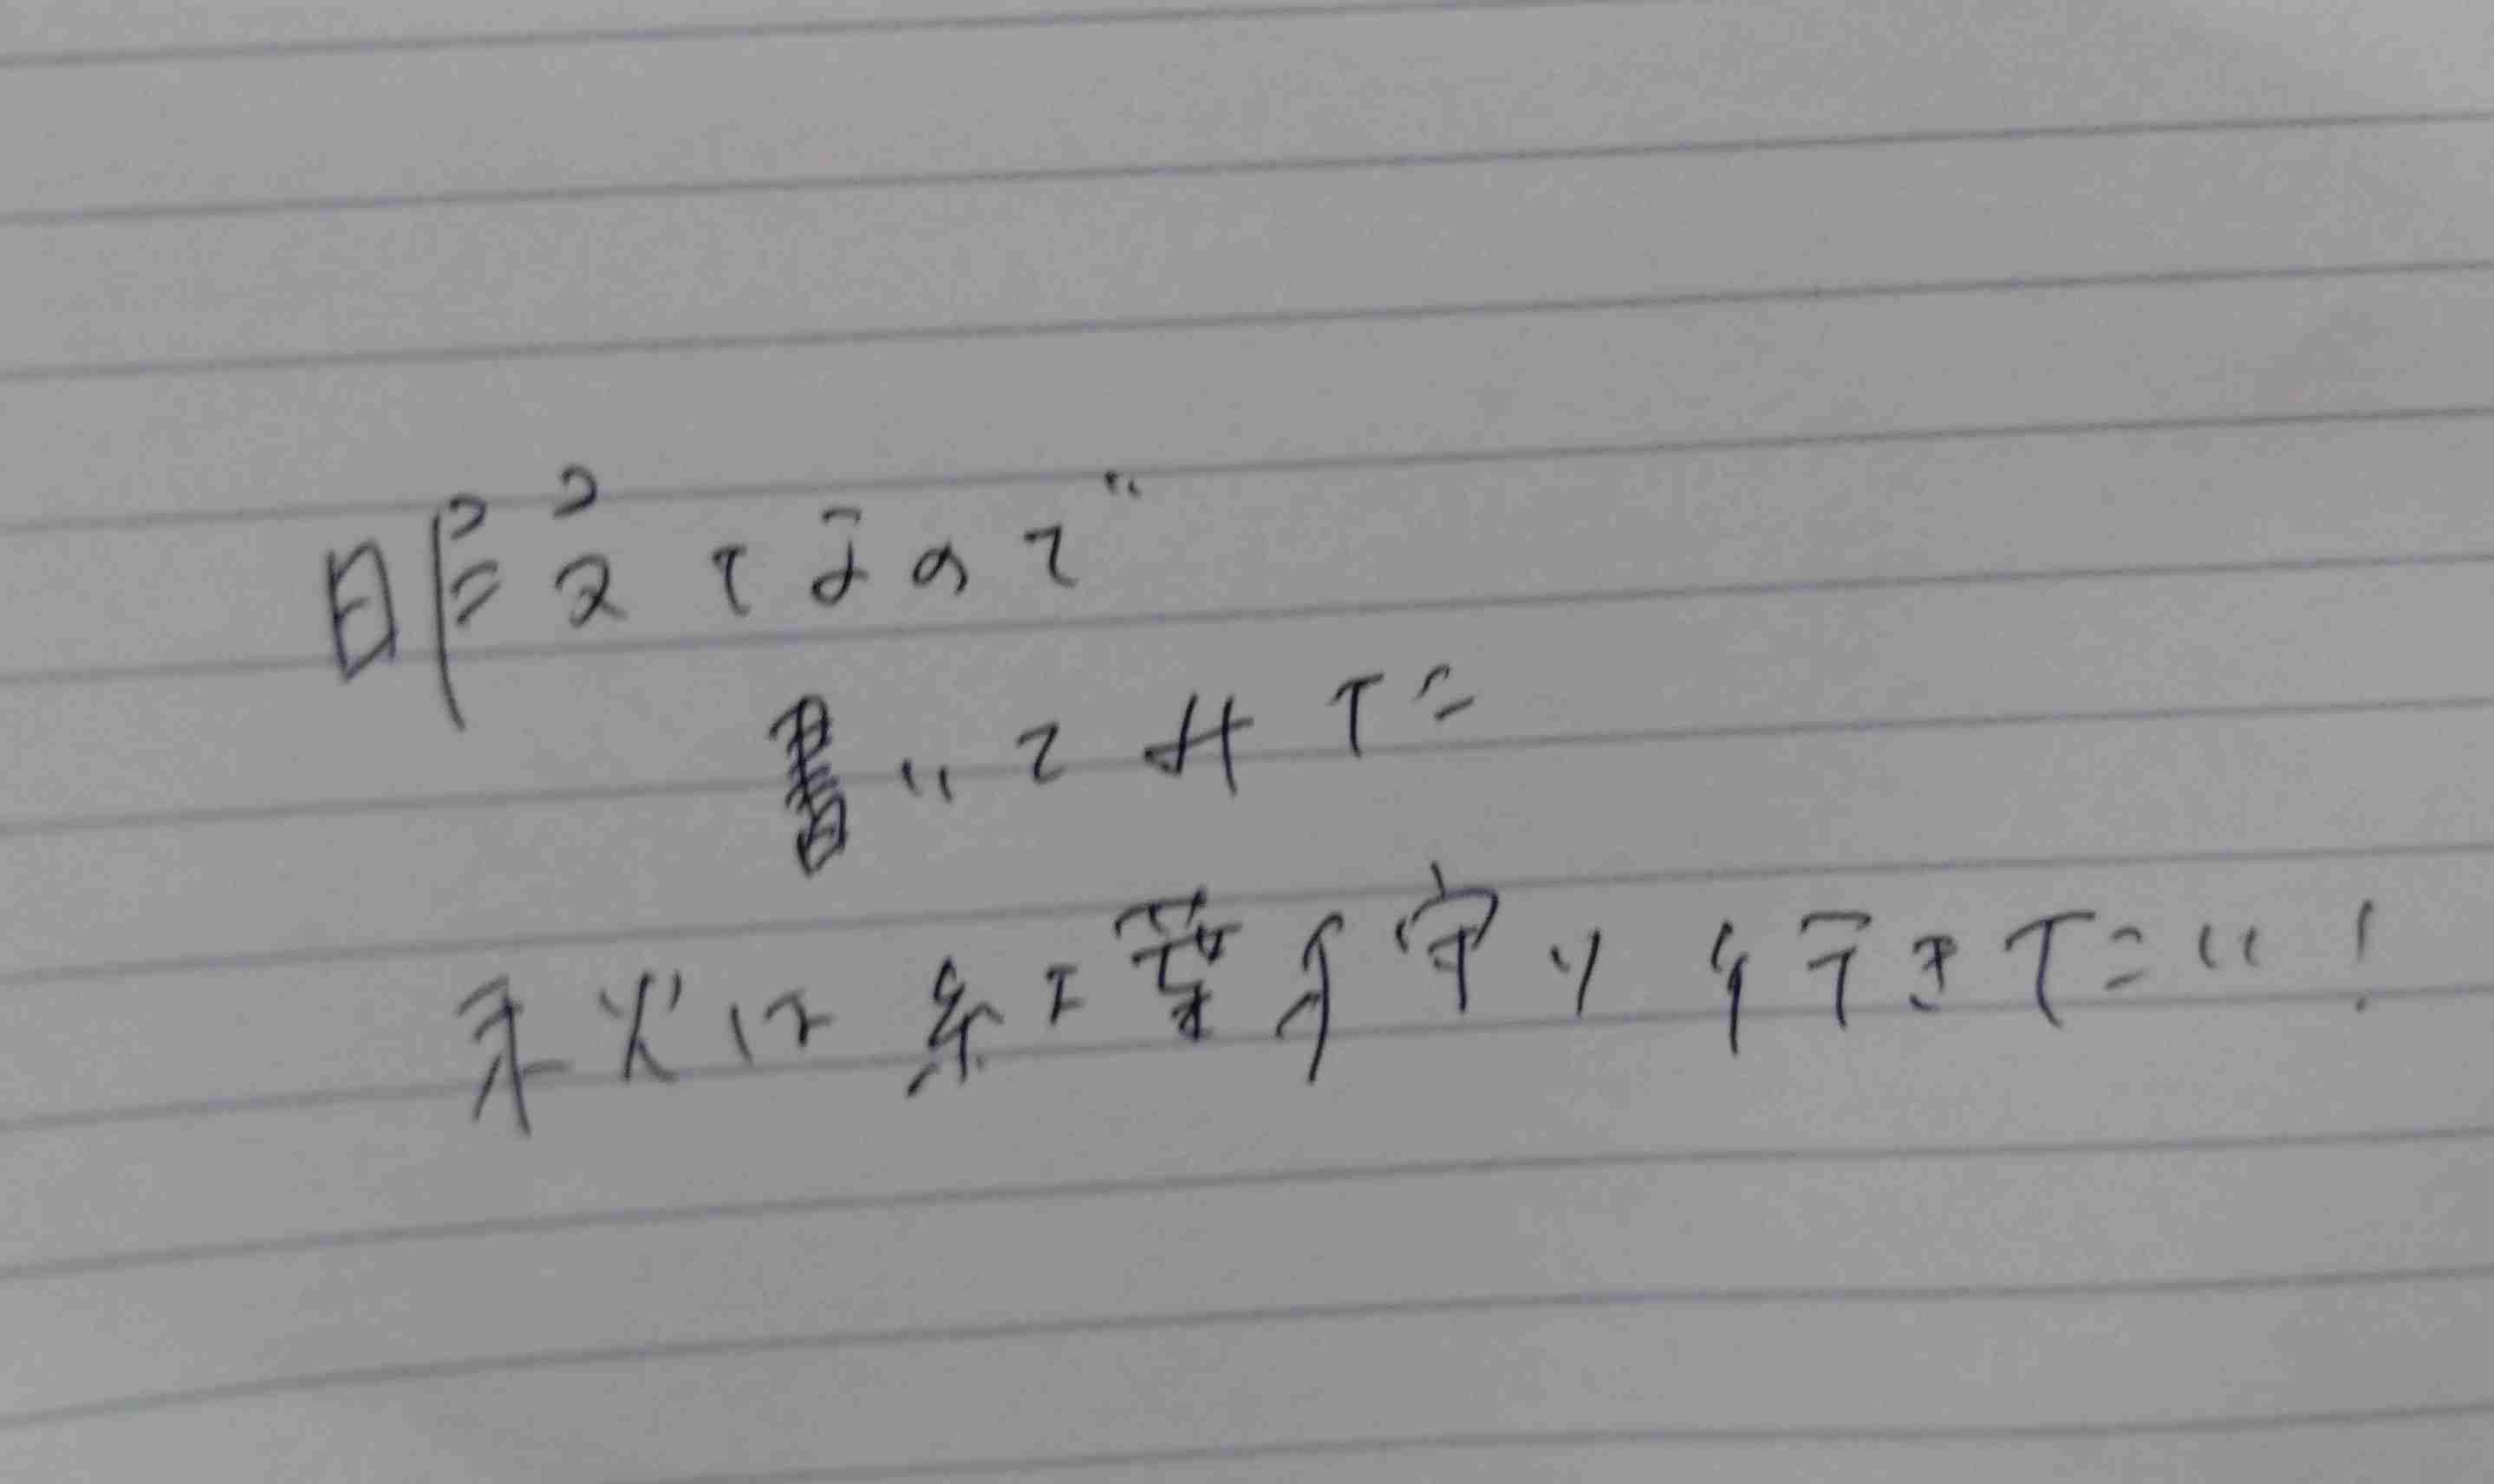 暇ってるので
書いてみた
秋は紅葉を守り行きたい!